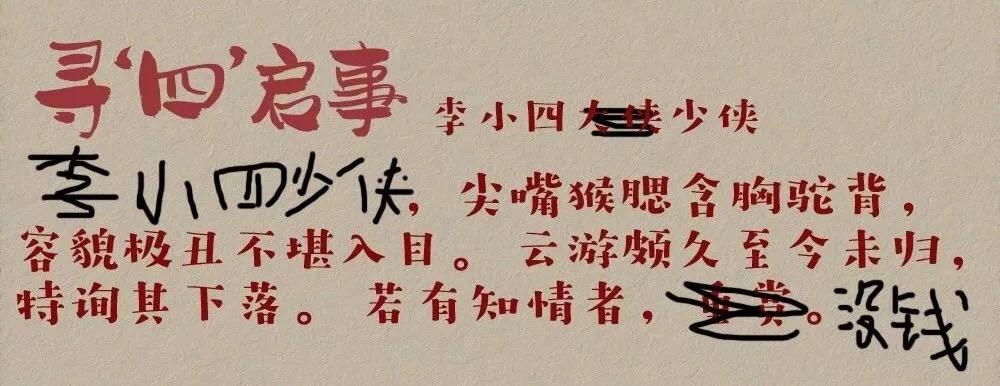 寻‘四’启事 李小四大侠少侠
李小四少侠，尖嘴猴腮含胸驼背，
容貌极丑不堪入目。云游颇久至今未归，
特询其下落。若有知情者，重赏。没钱